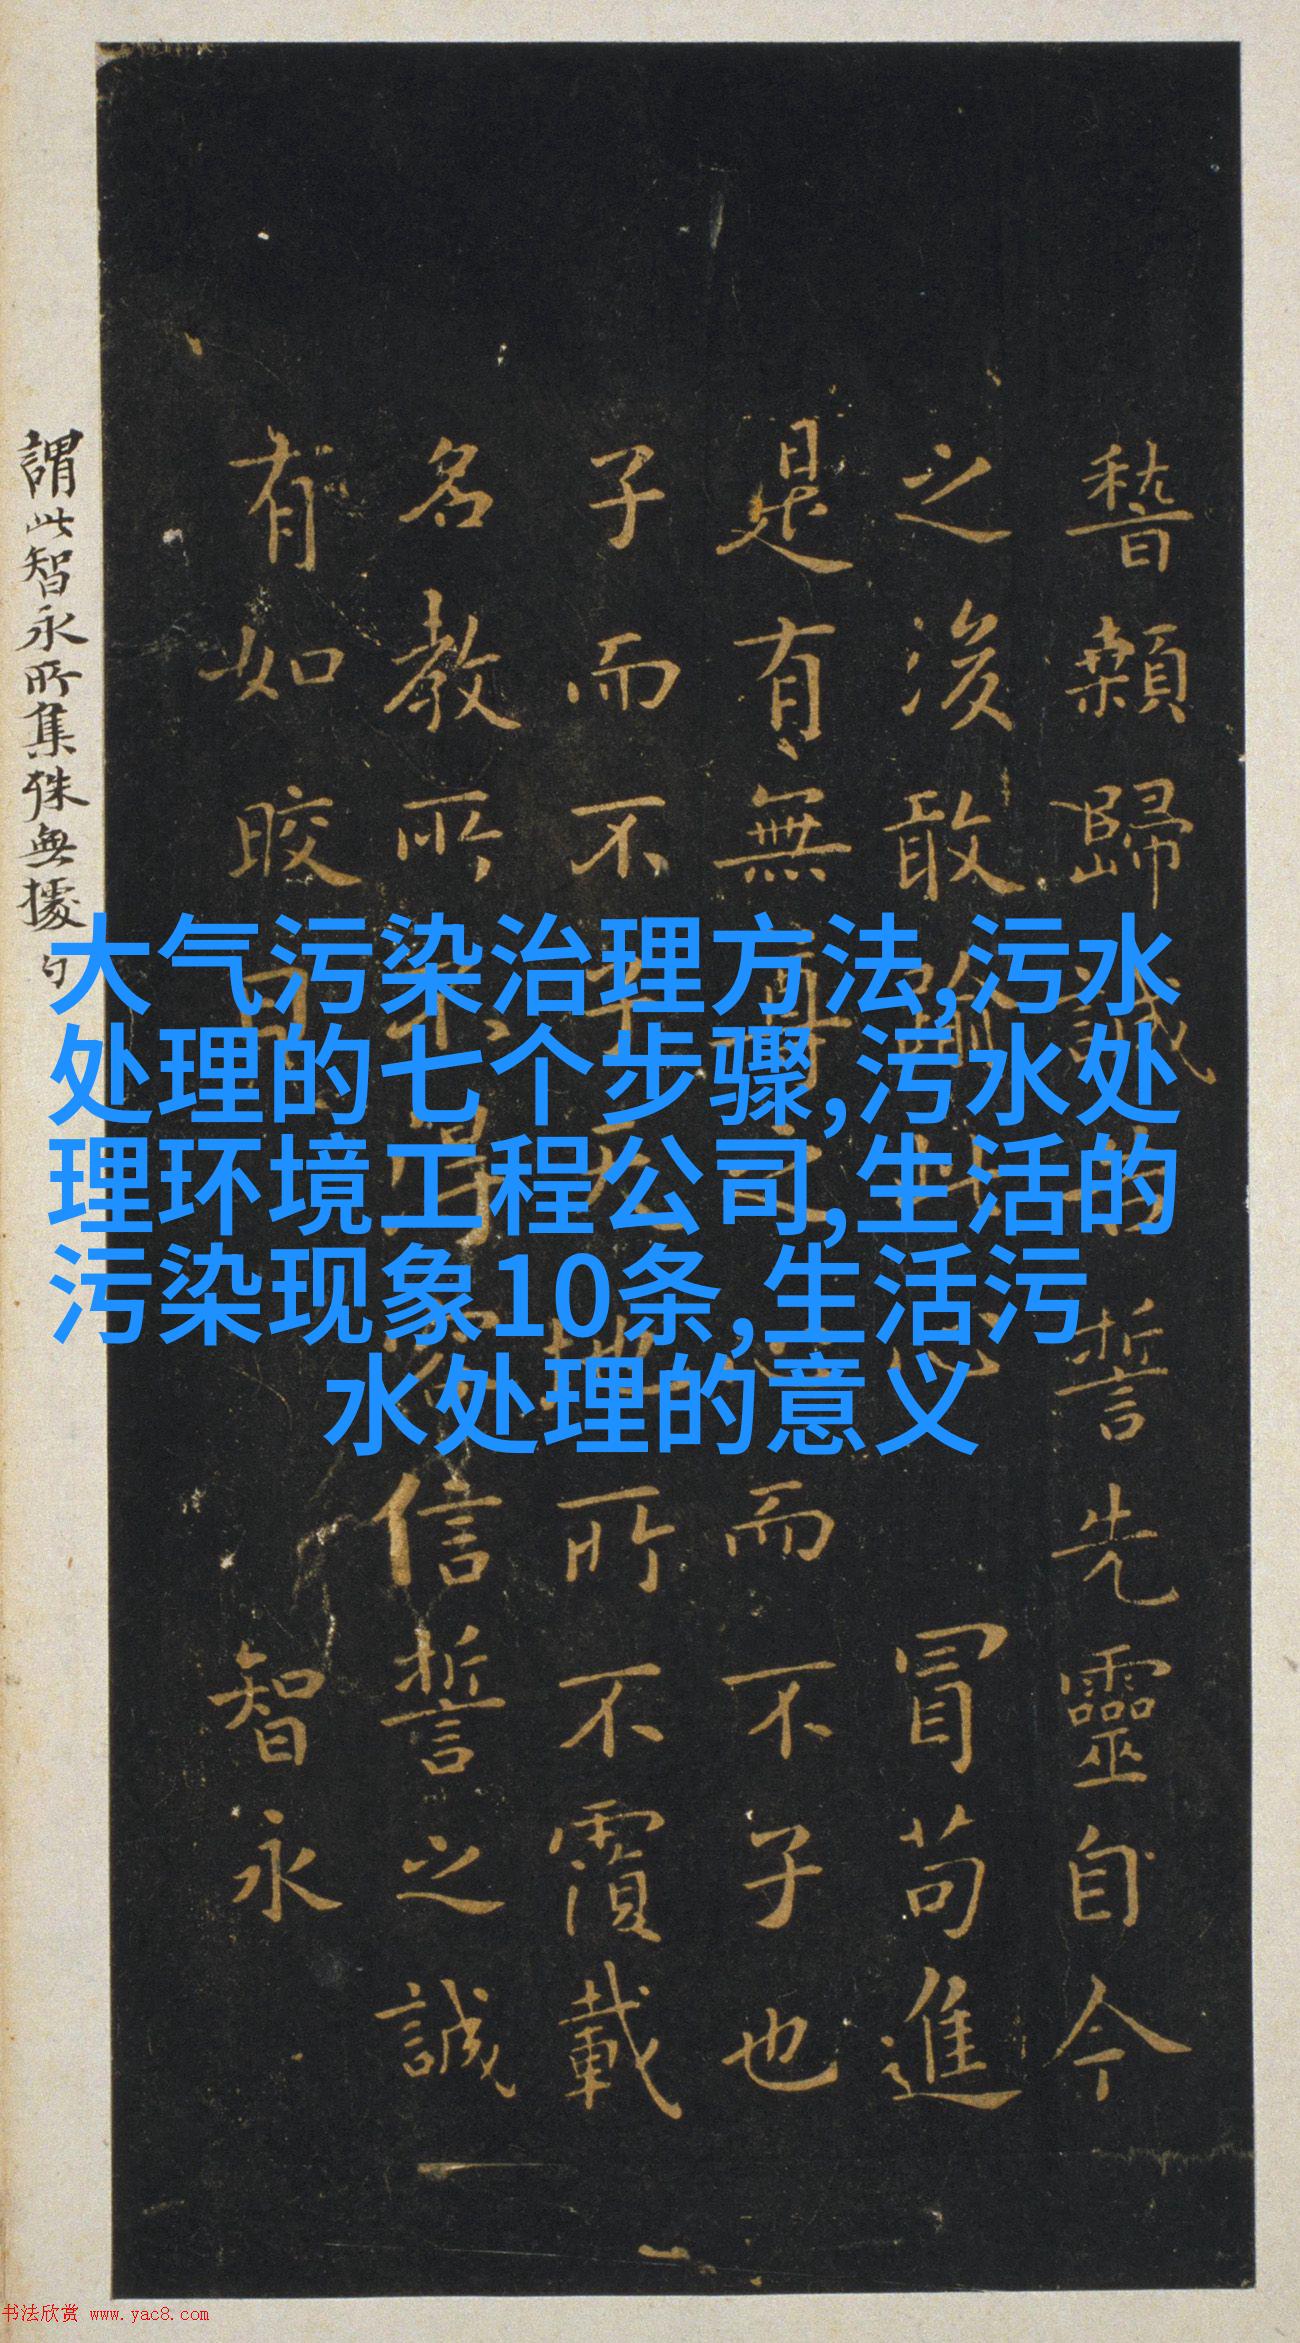 稽顙歸誠
誓先靈自今
之後敢
冒苟進
是有無
而不子也
子而不
地所不覆載
名教所不
得容信誓之誠
有如皎日
智永
謂此智永所集殊無據
大气污染治理方法,污水
处理的七个步骤,污水处
理环境工程公司,生活的
污染现象10条,生活污
水处理的意义
书法欣赏 www.yac8.com